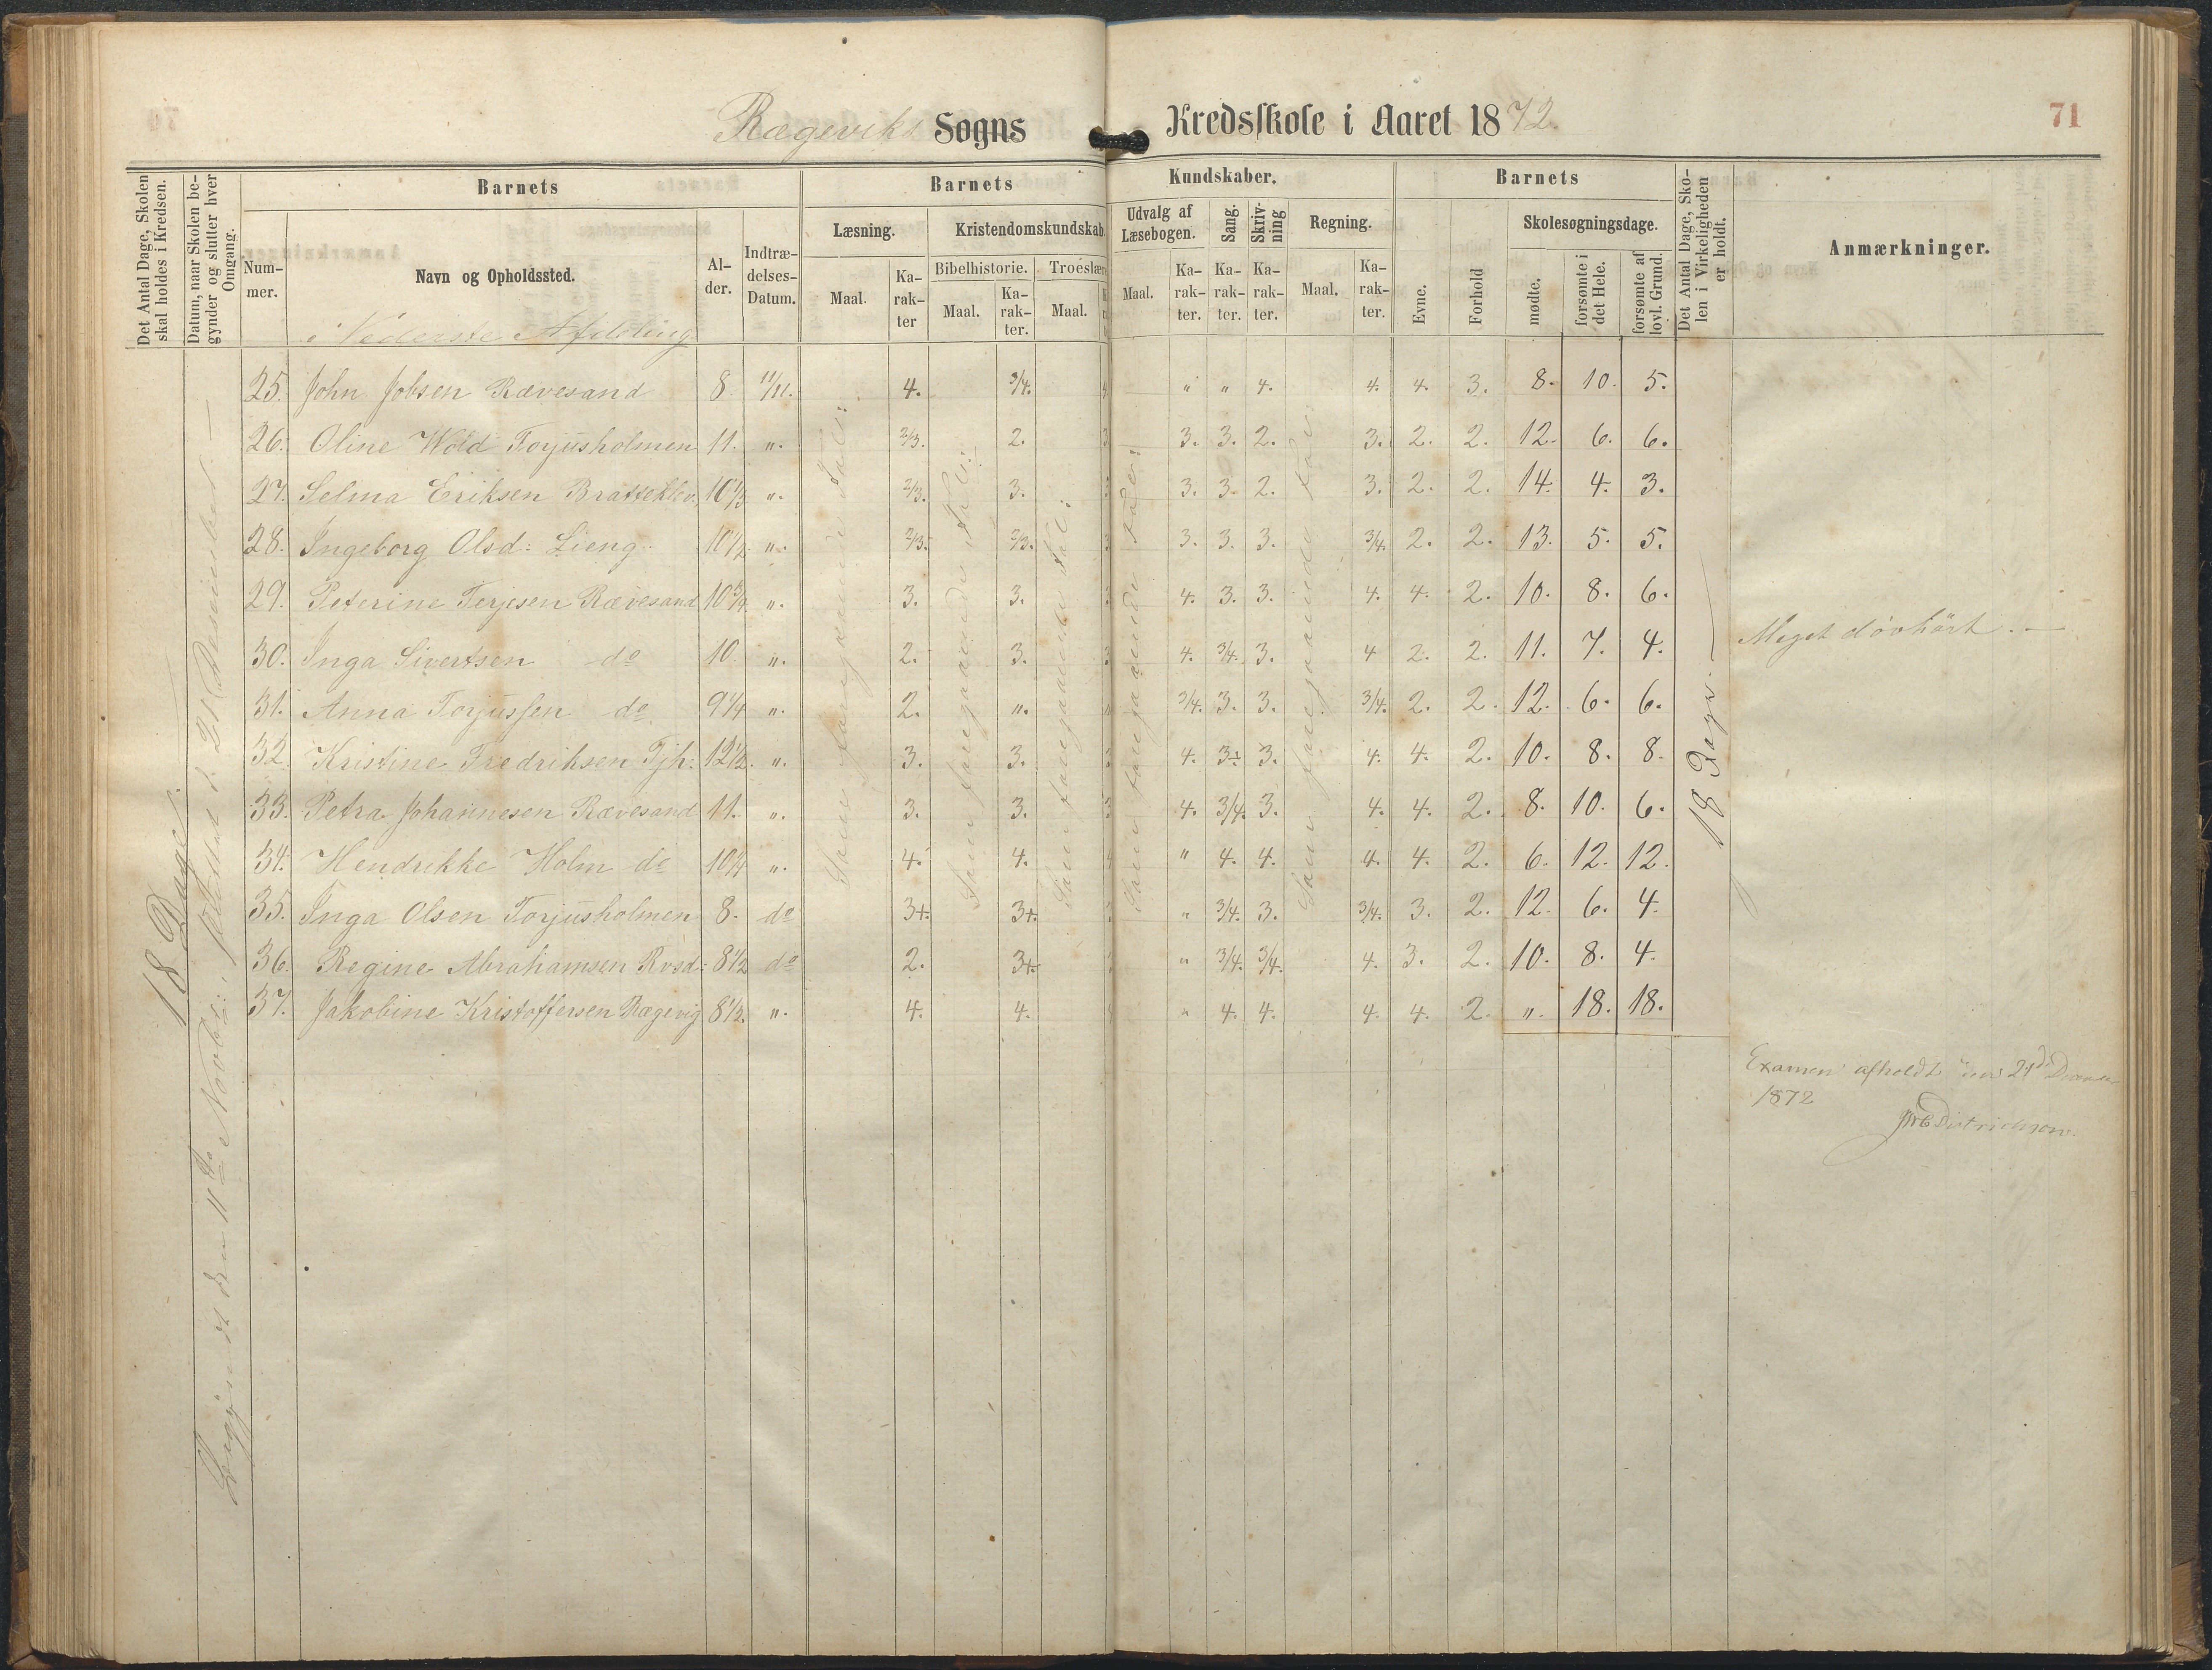 Rægeviks Sogns Kredsskole i Aaret 1872. 71
Det Antal Dage, Skolen skal holdes i Kredsen.
Datum, naar Skolen begynder og slutter hver Omgang.
Barnets
Nummer.
Navn og Opholdssted.
Alder.
Indtrædelses-Datum.
Barnets Kundskaber.
Læsning.
Maal.
Karakter
Kristendomskundskab.
Bibelhistorie.
Maal.
Karakter.
Troeslære
Maal.
Udvalg af Læsebogen.
Maal.
Karakter.
Sang.
Karakter.
Skrivning
Karakter.
Regning.
Maal.
Karakter.
Barnets
Evne.
Forhold
Skolesøgningsdage.
mødte.
forsømte i det Hele.
forsømte af lovl. Grund.
Det Antal Dage, Skolen i Virkeligheden er holdt.
Anmærkninger.
i Nederste Afdeling
25. John Jobsen Rævesand 8. 11/11. 4. 3/4. 4 " " 4. 4. 4. 3. 8. 10. 5.
26. Oline Wold Torjusholmen 11. ". 2/3. 2. 3 3. 3. 2. 3. 2. 2. 12. 6. 6.
27. Selma Eriksen Bratteklev. 10 1/3 ". 2/3. 3. 3 3. 3. 2. 3. 2. 2. 14. 4. 3.
28. Ingeborg Olsd: Lieng. 10 1/2 ". 2/3. 2/3. 3 3. 3. 3. 3/4. 2. 2. 13. 5. 5.
29. Peterine Terjesen Rævesand 10 3/4 ". 3. 3. 3 4. 3. 3. 4. 4. 2. 10. 8. 6.
30. Inga Sivertsen do 10. ". 2. 3. 3 4. 3/4. 3. 4 2. 2. 11. 7. 4. Meget døvhört. —
31. Anna Torjussen do 9 1/4 ". 2. ". " 3/4. 3. 3. 3/4. 2. 2. 12. 6. 6.
32. Kristine Fredriksen Tjh: 12 1/2. ". 3. 3. 3 4. 3÷ 3. 4. 4. 2. 10. 8. 8.
33. Petra Johannesen Rævesand 11. ". 3. 3. 3 4. 3/4. 3. 4. 4. 2. 8. 10. 6.
34. Hendrikke Holm do 10 1/4 ". 4. 4. 4 " 4. 4. 4. 4. 2. 6. 12. 12.
35. Inga Olsen Torjusholmen 8. do 3+. 3+. 3 " 3/4. 3. 3/4. 3. 2. 12. 6. 4.
36. Regine Abrahamsen Rvsd: 8 1/2 do 2. 3+. 3 " 3/4. 3/4. 4. 3. 2. 10. 8. 4.
37. Jakobine Kristoffersen Rægevig 8 1/2. ". 4. 4. 4 " 4. 4. 4. 4. 2. ". 18. 18.
18 Dage.
Begyndt den 11te Novbr:, sluttet d. 21 Desember. —
Som foregaaende Tabel:
Som foregaaende Tabel:
Som foregaaende Tabel:
Som foregaaende Tabel:
Som foregaaende Tabel:
18 Dage. —
Examen afholdt den 21de December
1872